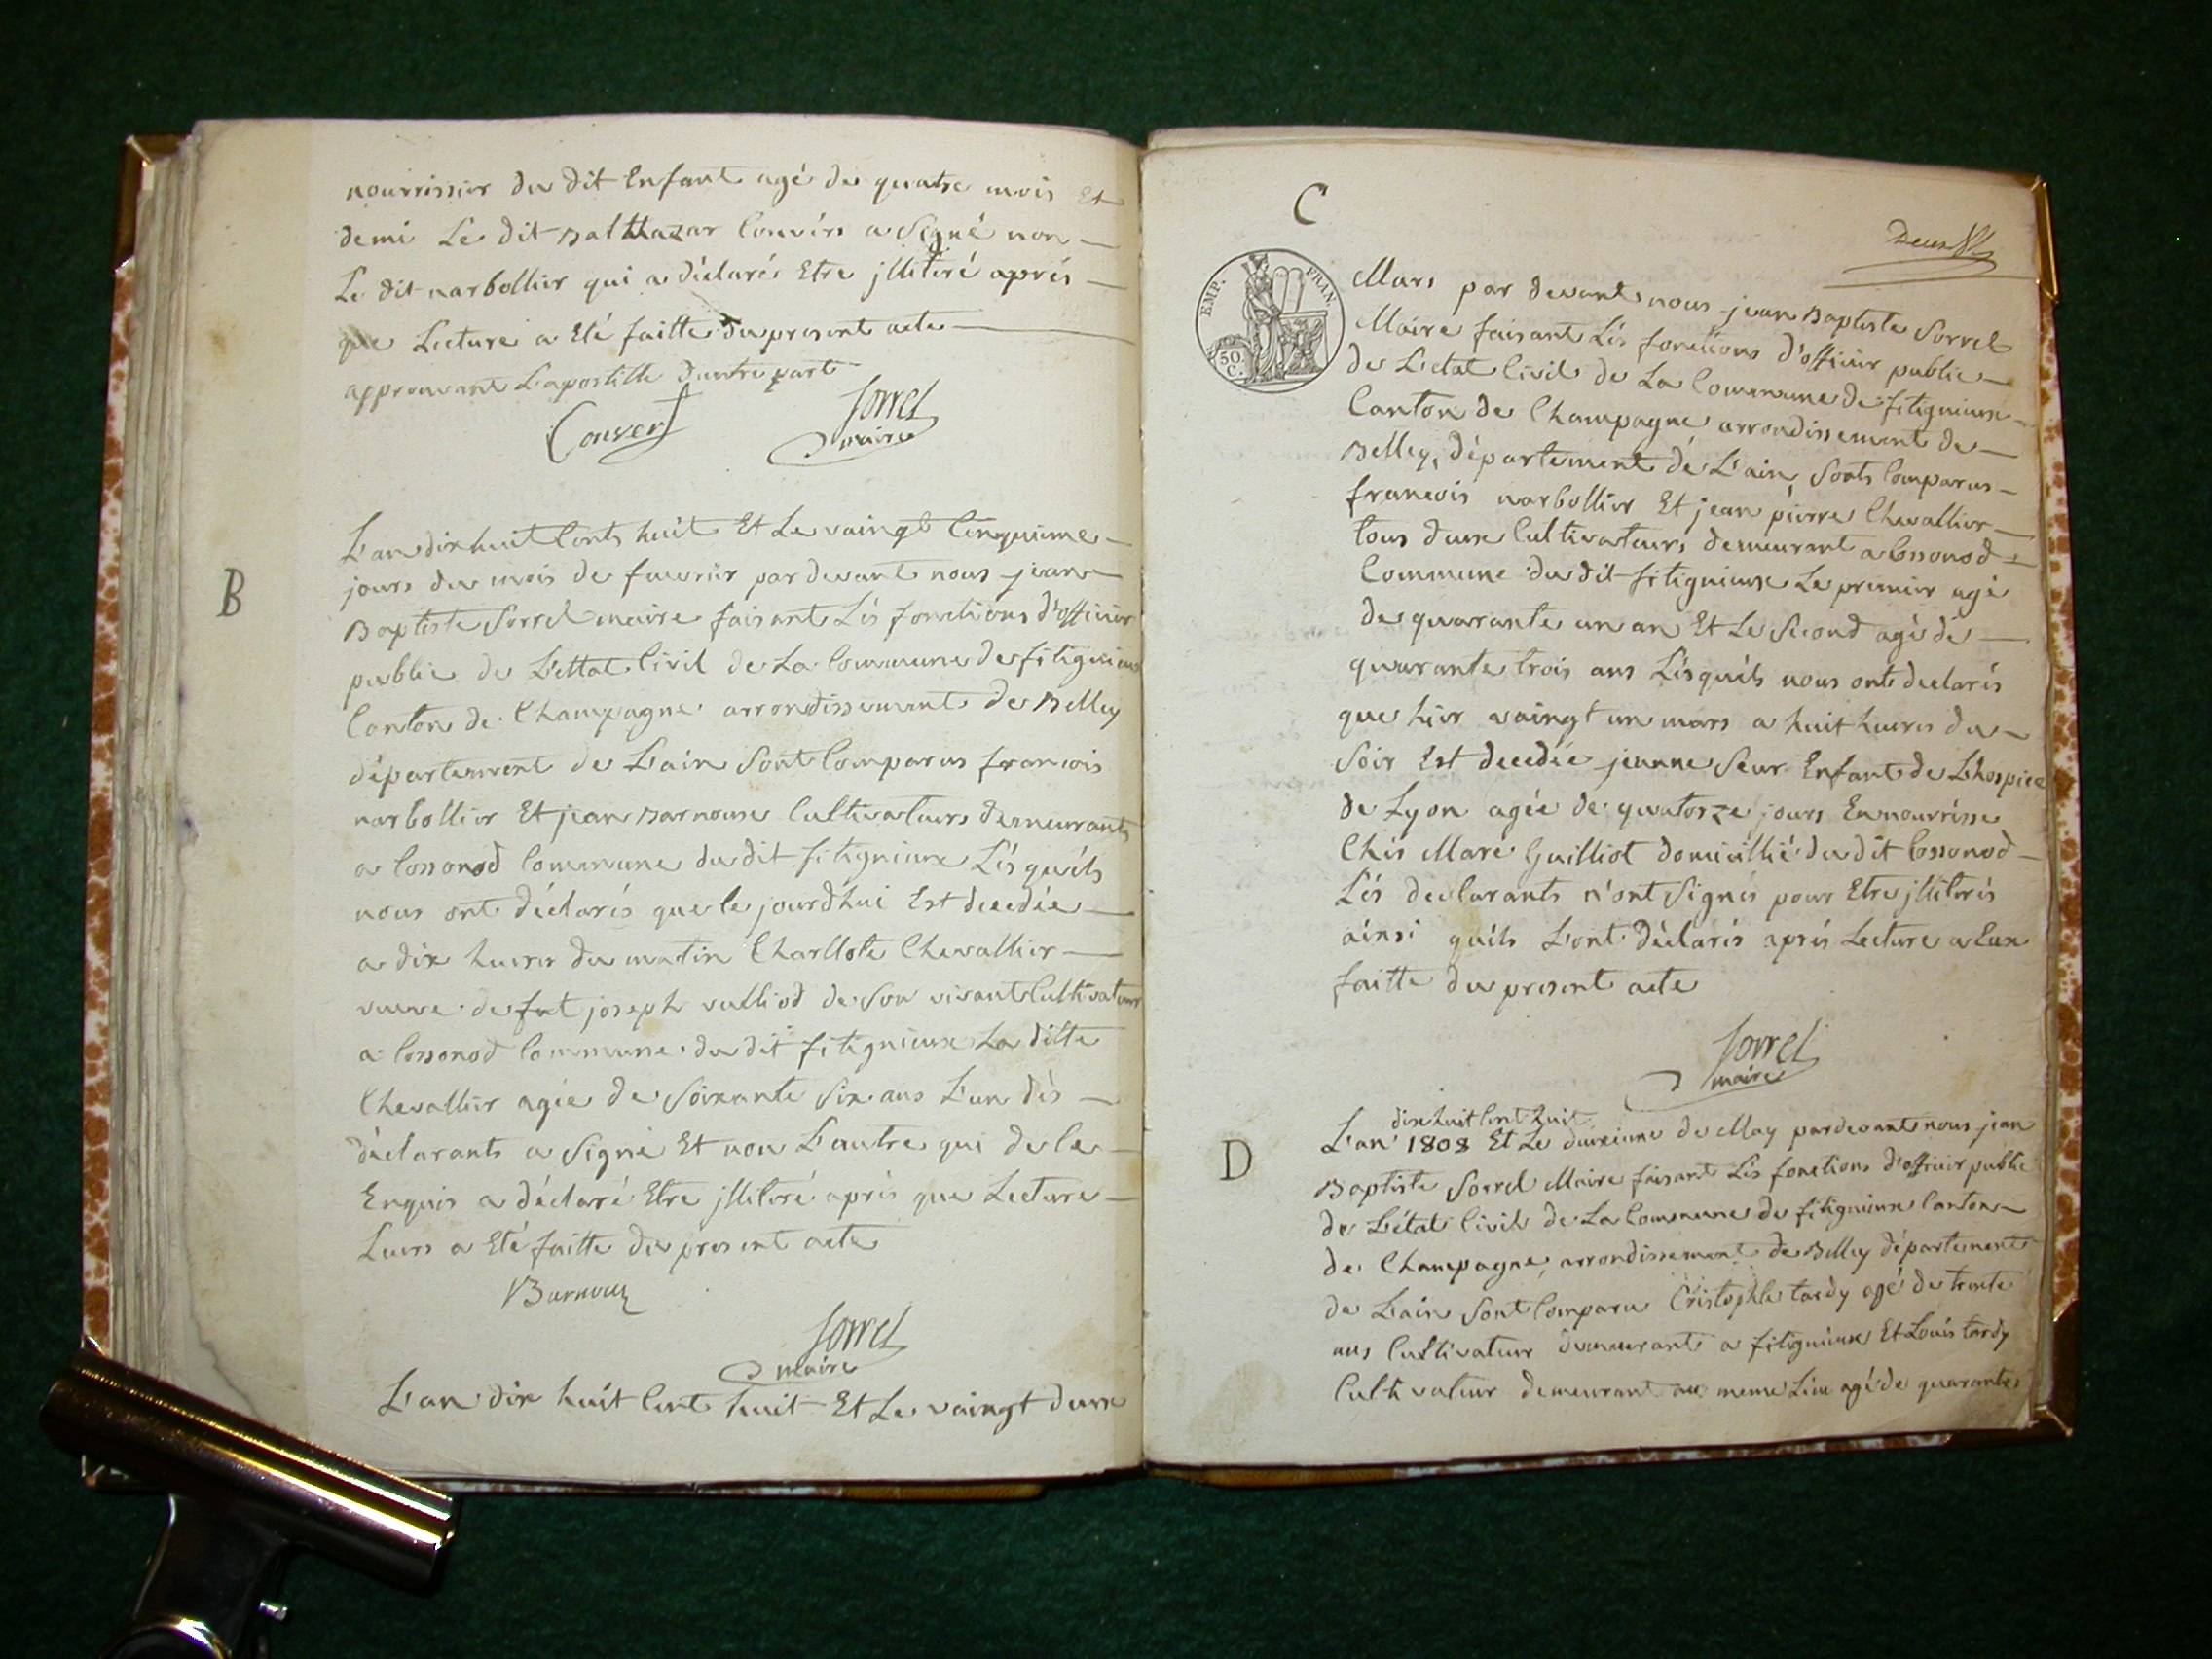 nourrissier du dit Enfant agé de quatre mois Et
demi Le dit Balthazar Convérs a Signé non
Le dit narbollier qui a déclarés Etre jlliteré aprés
que Lecture a Eté faitte du present acte
approuvant L'apostille dautre part
Convert
Sorrel
maire
B
L'an dix huit Cents huit Et Le vaingt Cinquieme
jours du mois de fuevrier par devant nous jean
Baptiste Sorrel maire faisant Lés fonctions d'officier
public de L'ettat Civil de La Commune de fitignieux
Canton de Champagne arrondissement de Belley
département de L'ain Sont Comparus francois
narbollier Et jean Barnoux Cultivateurs demeurants
a Cossonod Commune du dit fitignieux Lésquéls
nous ont déclarés que le jourdhui Est decedée
a dix hueres du matin Charllote Chevallier
veuve de fut joseph vulliod de Son vivant Cultivateur
a Cossonod Commune du dit fitignieux La ditte
Chevallier agée de Soixante Six ans L'un dés
déclarants a Signé Et non L'autre qui de le
Enquis a déclaré Etre jlliteré aprés que Lecture
Luers a Eté faitte du present acte
Barnoux
Sorrel
maire
L'an dix huit Cent huit Et Le vaingt deux
C
Deux
EMP. FRAN.
50 C.
Mars par devant nous jean Baptiste Sorrel
Maire faisant Lés fonctions d'officier public
de L'etat Civil de La Commune de fitignieux
Canton de Champagne arrondissement de
Belley, département de L'ain, Sonts Comparus
francois narbollier Et jean piérre Chevallier
tous deux Cultivateurs demeurant a Cossonod
Commune du dit fitignieux Le premier agé
de quarante un an Et Le Second agé de
quarante trois ans Lésquéls nous ont declarés
que hier vaingt un mars a huit hueres du
Soir Est decedée jeanne Seur Enfant de L'hospice
de Lyon agée de quatorze jours En nourrisse
Chés Marc Guilliot domicillié du dit Cossonod
Lés declarants n'ont Signés pour Etre jlliterés
ainsi quéls L'ont déclarés aprés Lecture a Eux
faitte du present acte
Sorrel
maire
D
dix huit Cent huit
L'an 1808 Et Le duixieme de May pardevant nous jean
Baptiste Sorrel Maire faisant Lés fonctions d'officier public
de L'état Civil de La Commune de fitignieux Canton
de Champagne, arrondissement de Belley département
de L'ain Sont Comparu Cristophle tardy agé de trente
ans Cultivateur demeurant a fitignieux Et Louis tardy
Cultivateur demeurant au meme Lieu agé de quarante